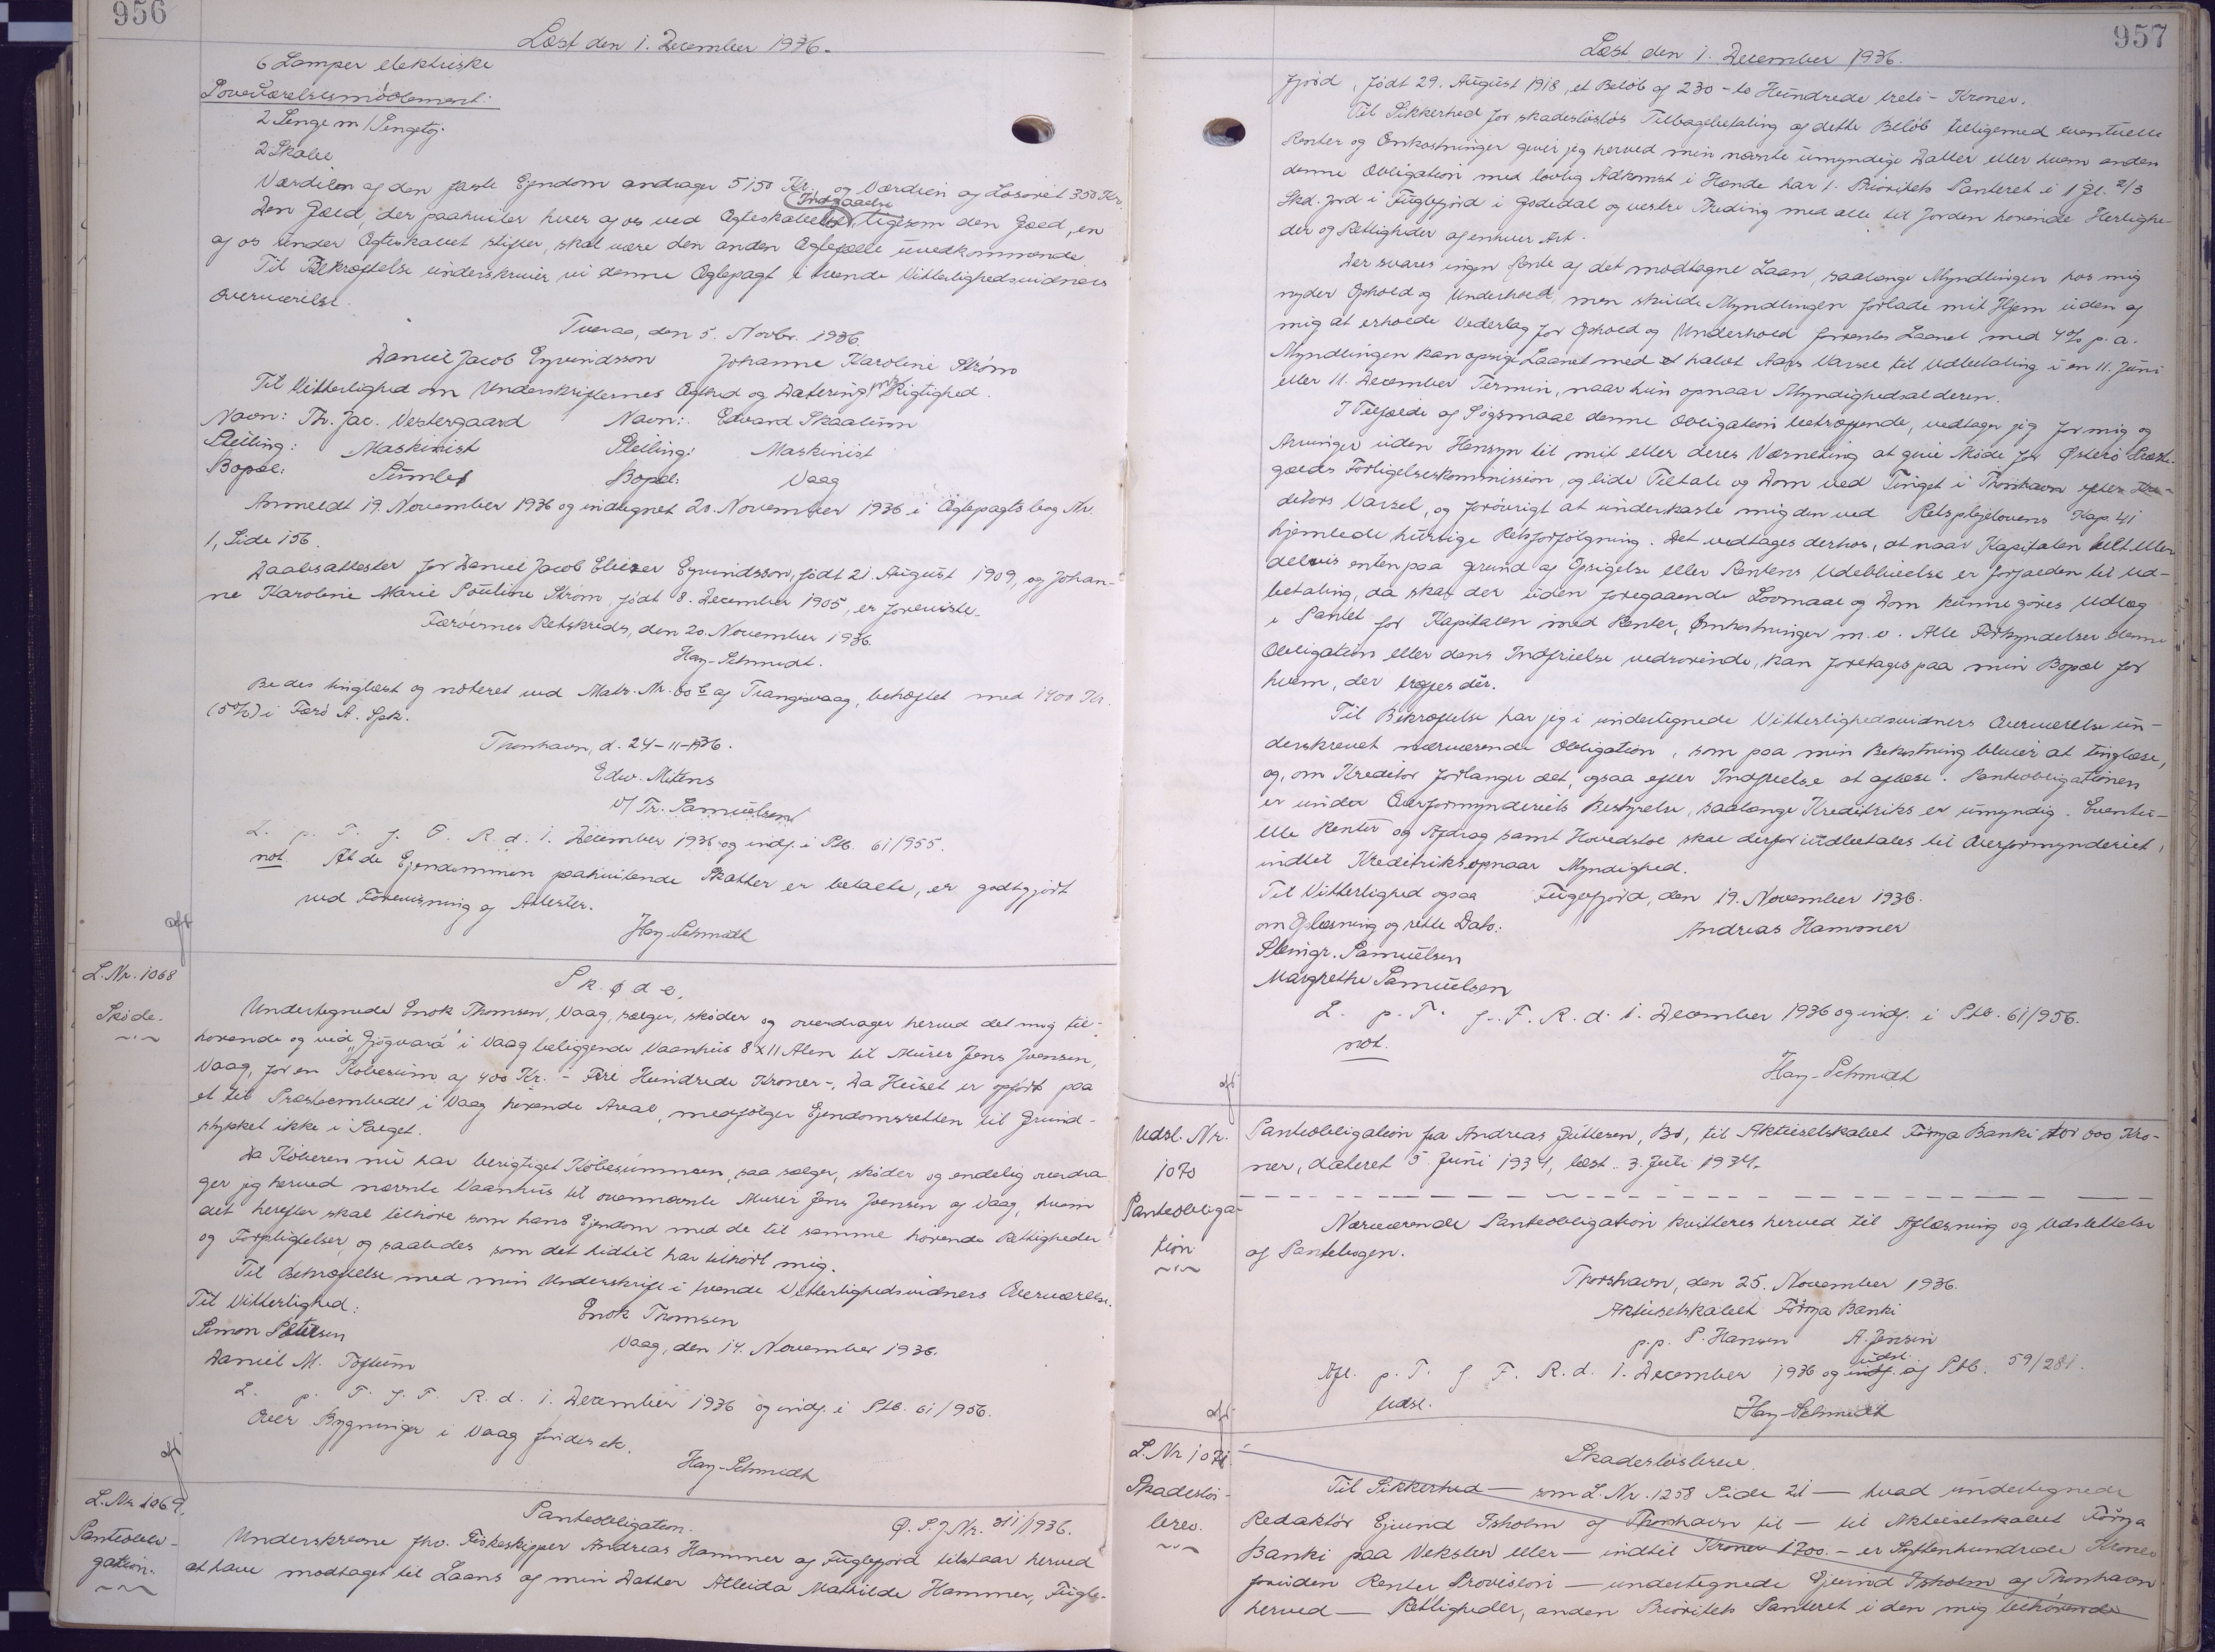 956
Læst den 1. December 1936.
6 Lamper elektriske
Soveværelsesmöblement:
2 Senge m/Sengetøj.
2 Skabe
Værdien af den faste Ejendom andrager 5150 Kr. og Værdien af Løsøret 350 Kr.
Den Gæld, der paahviler hver af os ved Ægteskabets Indgaaelse, ligesom den Gæld, en
af os under Ægteskabet stifter, skal være den anden Ægtefælle uvedkommende.
Til Bekræftelse underskriver vi denne Ægtepagt i tvende Vitterlighedsvidners
Overværelse.
Tveraa, den 5. Novbr. 1936.
Daniel Jacob Eyvindsson Johanne Karoline Strøm
Til Vitterlighed om Underskrifternes Ægthed og Dateringens Rigtighed.
Navn: Th. Jac. Vestergaard Navn: Edvard Skaalum
Stilling: Maskinist Stilling: Maskinist
Bopæl: Sumbø Bopæl: Vaag
Anmeldt 19. November 1936 og indtegnet 20. November 1936 i Ægtepagtsbog Nr.
1, Side 156.
Daabsattester for Daniel Jacob Eliezer Eyvindsson, født 21. August 1909, og Johan-
ne Karoline Marie Pouline Strøm, født 8. December 1905, er foreviste.
Færøernes Retskreds, den 20. November 1936.
Hay-Schmidt.
Bedes tinglæst og noteret ved Matr. Nr. 60 af Trangisvaag, behæftet med 1400 Kr.
(5%) i Færø A. Spk.
Thorshavn, d. 24-11-1936.
Edw. Mitens
v/ Tr. Samuelsen
L. p. T. f. F. R. d. 1. December 1936 og indf. i Ptb. 61/955.
not. At de Ejendommen paahvilende Skatter er betalte, er godtgjort
ved Forevisning af Attester.
Hay-Schmidt
aft
L. Nr. 1068
Skøde.
Skøde.
Undertegnede Enok Thomsen, Vaag, sælger, skøder og overdrager herved det mig til-
hørende og ved „Gjógvará" i Vaag beliggende Vaanhus 8 x 11 Alen til Murer Jens Joensen,
Vaag, for en Købesum af 400 Kr. - Fire Hundrede Kroner -. Da Huset er opført paa
et til Præsteembedet i Vaag hørende Areal, medfølger Ejendomsretten til Grund-
stykket ikke i Salget.
Da Køberen nu har berigtiget Købesummen, saa sælger, skøder og endelig overdra-
ger jeg herved nævnte Vaanhus til ovennævnte Murer Jens Joensen af Vaag, hvem
det herefter skal tilhøre som hans Ejendom med de til samme hørende Rettigheder
og Forpligtelser, og saaledes som det hidtil har tilhørt mig.
Til Bekræftelse med min Underskrift i tvende Vitterlighedsvidners Overværelse.
Til Vitterlighed: Enok Thomsen
Simon Petersen Vaag, den 14. November 1936.
Daniel M. Toftum
L. p. T. f. F. R. d. 1. December 1936 og indf. i Ptb. 61/956.
Over Bygninger i Vaag findes ek.
Hay-Schmidt
aft
L. Nr. 1069.
Panteobli-
gation.
Panteobligation. Ø. S. J Nr. 311/1936.
Underskrevne fhv. Fiskeskipper Andreas Hammer af Fuglefjord tilstaar herved
at have modtaget til Laans af min Datter Alleida Mathilde Hammer, Fugle-
957
Læst den 1. December 1936.
fjord, født 29. August 1918, et Beløb af 230 - to Hundrede treti - Kroner.
Til Sikkerhed for skadesløsløs Tilbagebetaling af dette Beløb tilligemed eventuelle
Renter og Omkostninger giver jeg herved min nævnte umyndige Datter eller hvem anden
denne Obligation med lovlig Adkomst i Hænde har 1. Prioritets Panteret i 1 Gl. 2/3
Skd. Jord i Fuglefjord i Godedal og vestre Treding med alle til Jorden hørende Herlighe-
der og Rettigheder af enhver Art.
Der svares ingen Rente af det modtagne Laan, saalænge Myndlingen hos mig
nyder Ophold og Underhold, men skulde Myndlingen forlade mit Hjem uden af
mig at erholde Vederlag for Ophold og Underhold forrentes Laanet med 4% p.a.
Myndlingen kan opsige Laanet med et halvt Aars Varsel til Udbetaling i en 11. Juni
eller 11. December Termin, naar hun opnaar Myndighedsalderen.
I Tilfælde af Søgsmaal denne Obligation betræffende, vedtager jeg for mig og
Arvinger uden Hensyn til mit eller deres Værneting at give Møde for Østerø Præste-
gælds Forligelseskommission, og lide Tiltale og Dom ved Tinget i Thorshavn efter Kre-
ditors Varsel, og forøvrigt at underkaste mig den ved Retsplejelovens Kap. 41
hjemlede hurtige Retsforfølgning. Det vedtages derhos, at naar Kapitalen helt eller
delvis enten paa Grund af Opsigelse eller Rentens Udeblivelse er forfalden til Ud-
betaling, da skal der uden foregaaende Lovmaal og Dom kunne gøres Udlæg
i Pantet for Kapitalen med Renter, Omkostninger m.v. Alle Forkyndelser denne
Obligation eller dens Indfrielse vedrørende, kan foretages paa min Bopæl for
hvem, der træffes dér.
Til Bekræftelse har jeg i undertegnede Vitterlighedsvidners Overværelse un-
derskrevet nærværende Obligation, som paa min Bekostning bliver at tinglæse,
og, om Kreditor forlanger det, ogsaa efter Indfrielse at aflæse. Panteobligationen
er under Overformynderiets Bestyrelse, saalænge Kreditriks er umyndig. Eventu-
elle Renter og Afdrag samt Hovedstol skal derfor indbetales til Overformynderiet,
indtil Kreditriks opnaar Myndighed.
Til Vitterlighed ogsaa Fuglefjord, den 19. November 1936.
om Oplæsning og rette Dato: Andreas Hammer
Steingr. Samuelsen
Margrethe Samuelsen
L. p. T. f. F. R. d. 1. December 1936 og indf. i Ptb. 61/956.
not.
Hay-Schmidt
aft
Udsl. Nr.
1070
Panteobliga-
tion
Panteobligation fra Andreas Guttesen, Bø, til Aktieselskabet Føroya Banki stor 600 Kro-
ner, dateret 5. Juni 1934, læst 3. Juli 1934.
Nærværende Panteobligation kvitteres herved til Aflæsning og Udslettelse
af Pantebogen.
Thorshavn, den 25. November 1936.
Aktieselskabet Føroya Banki
p.p. P. Hansen A. Jensen
Afl. p. T. f. F. R. d. 1. December 1936 og indf. udsl. af Ptb. 59/281.
Udsl. Hay-Schmidt
aft
L. Nr 1071.
Skadesløs-
brev.
Skadesløsbrev.
Til Sikkerhed — som L. Nr. 1258 Side 21 — hvad undertegnede
Redaktør Ejvind Isholm af Thorshavn til — til Aktieselskabet Føroya
Banki paa Veksler eller — indtil Kroner 1700.- er Syttenhundrede Kroner
foruden Renter Provision — undertegnede Ejvind Isholm af Thorshavn
herved — Rettigheder, anden Prioritets Panteret i den mig tilhørende